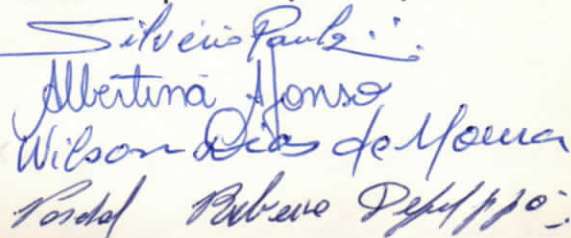 Silverio Paula
Albertina Afonso
Wilson Dias de Moura
Ribeiro